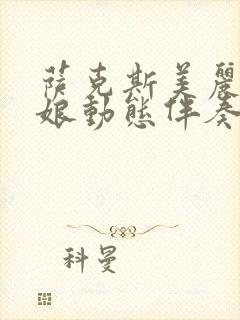 薩克斯美麗
娘動態伴奏
科曼